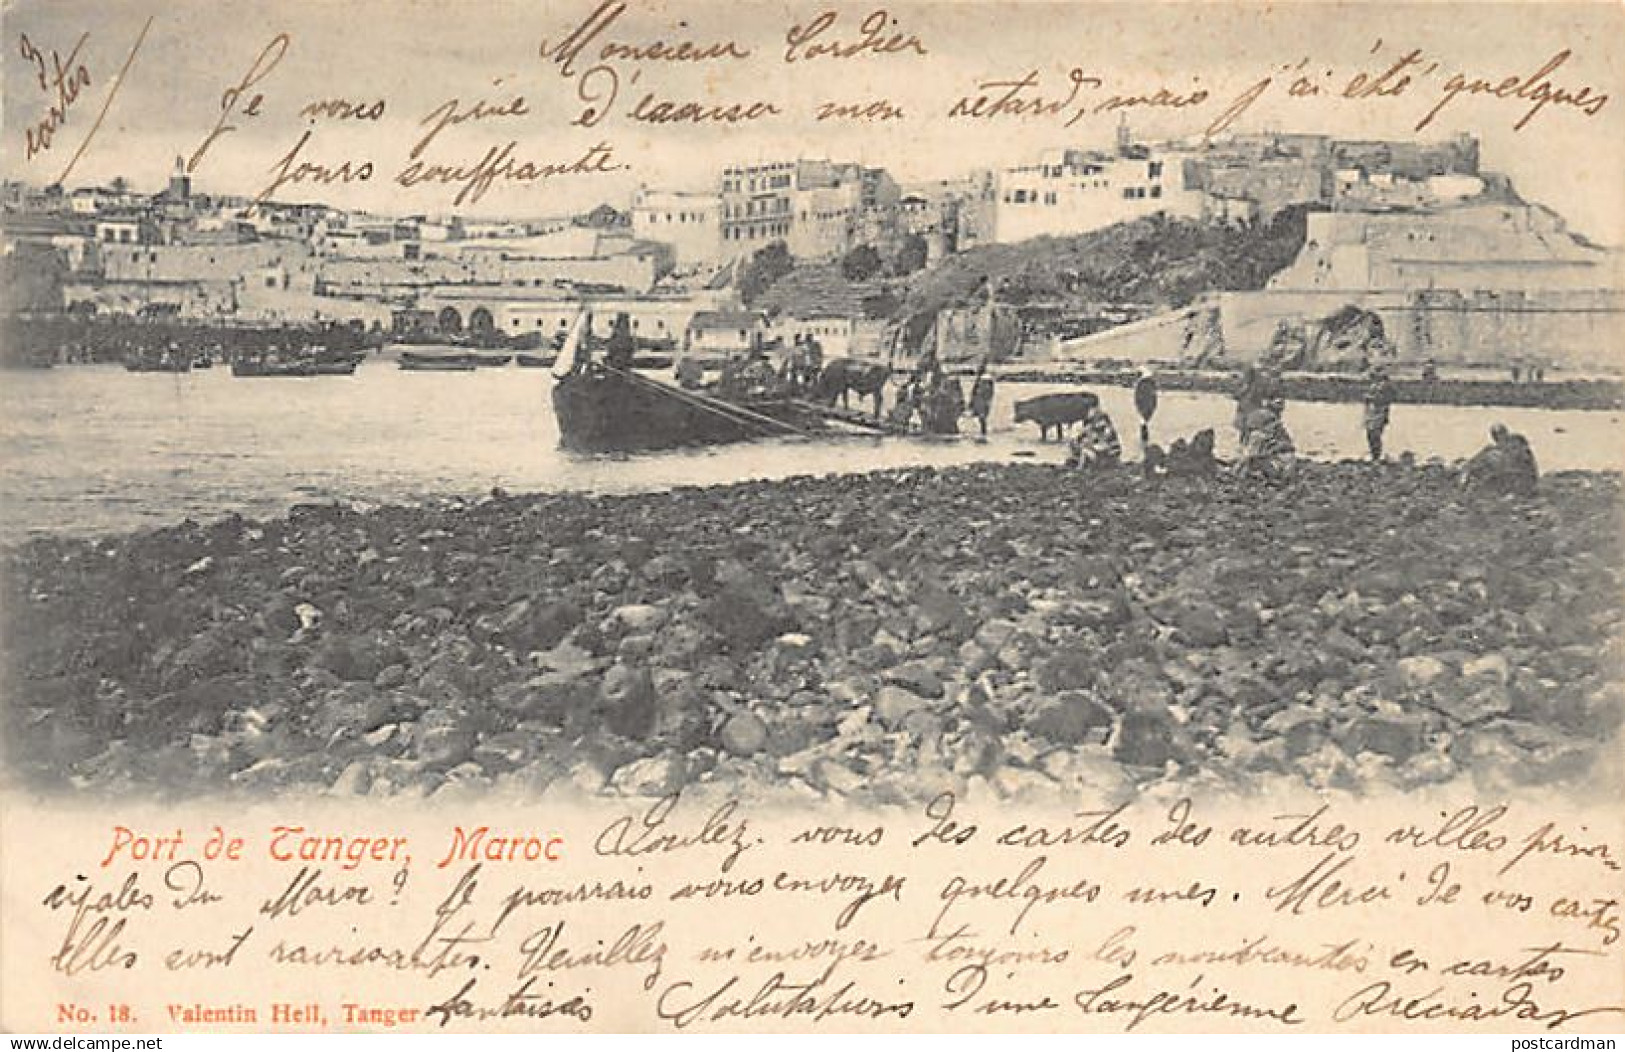 3
cartes
Monsieur Cordier
Je vous prie d'excuser mon retard, mais j'ai été quelques
jours souffrante.
Port de Tanger, Maroc
Voulez-vous des cartes des autres villes prin-
cipales du Maroc? Je pourrais vous envoyer quelques unes. Merci de vos cartes
elles sont ravissantes. Veuillez m'envoyer toujours les nouveautés en cartes
fantaisies Salutations d'une Tangérienne
No. 18. Valentin Hell, Tanger
postcardman